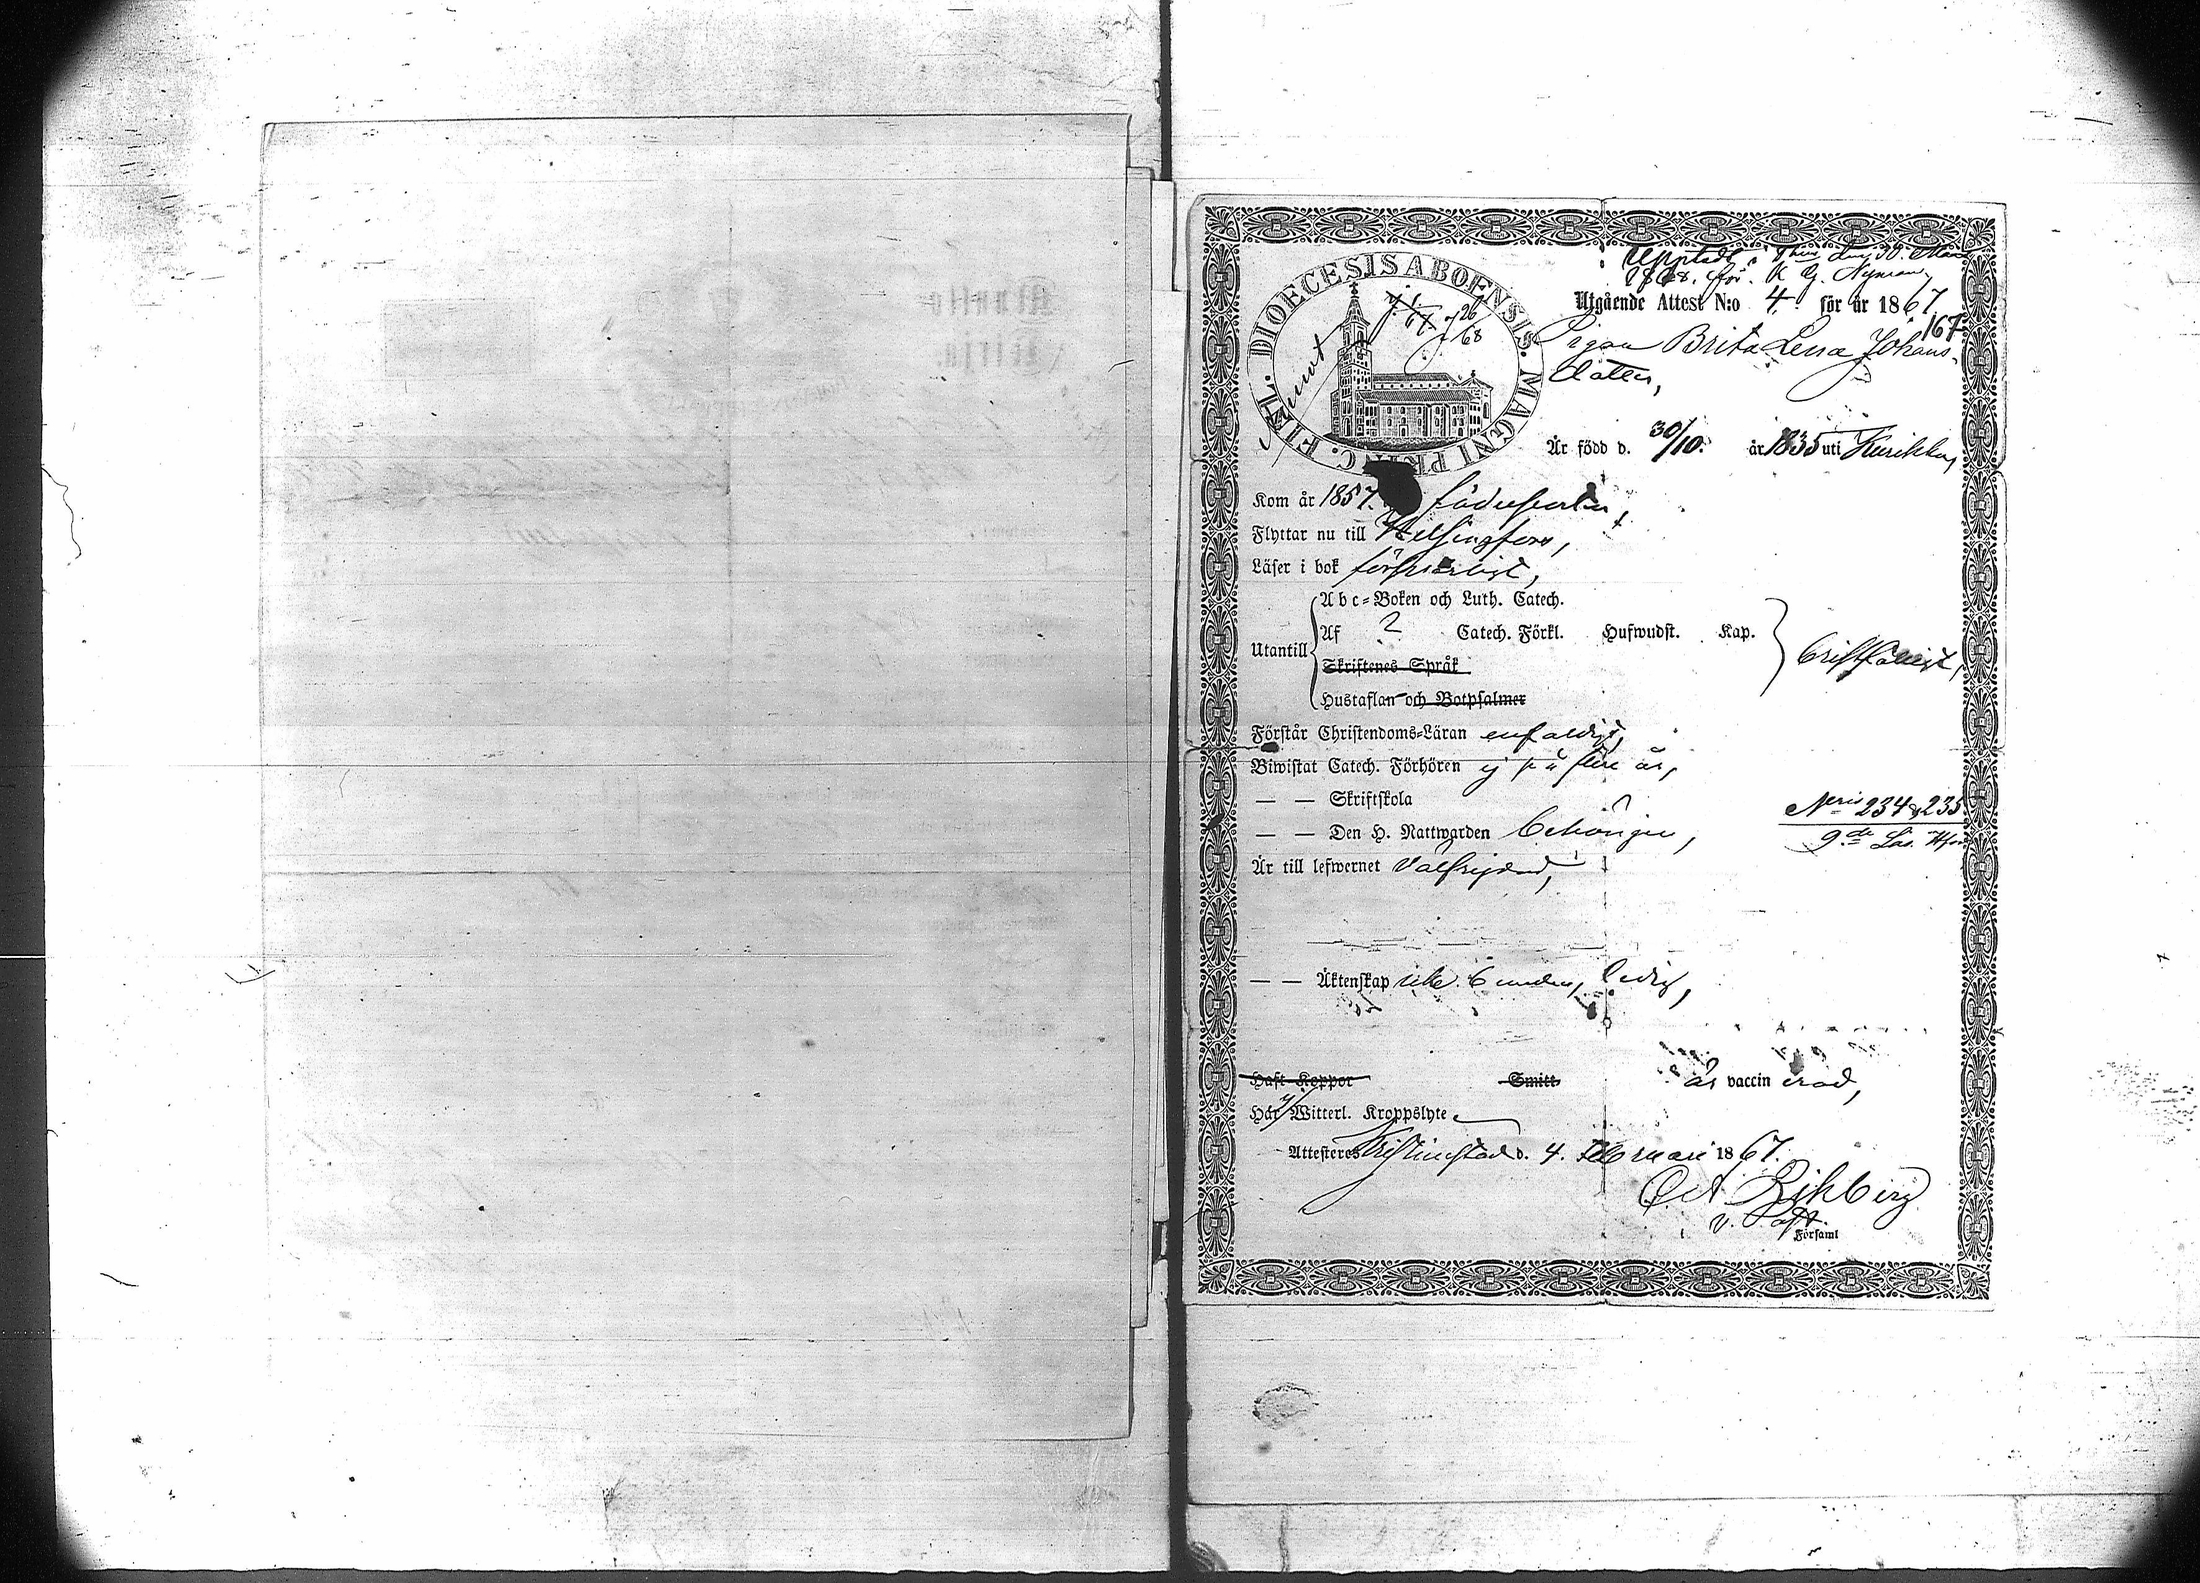 Uppvist i Thus den 30. Mars
1868, för. K. G. Nyman
Utgående Attest N:o 4. för år 1867.
167
DIOECESIS ABOENSIS. MAGNI PRINC. FINL.
26
68
Pigan Brita Lena Johans-
dotter,
Är född d. 30/10. år 1835 uti Kurikka,
Kom år 1857. födelseorten,
Flyttar nu till Helsingfors,
Läser i bok försvarligt,
Abc-Boken och Luth. Catech.
Utantill Af 2 Catech. Förkl. Hufwudst. Kap. bristfälligt,
Skriftenes Språk
Hustaflan och Botpsalmer
Förstår Christendoms-Läran enfaldigt,
Biwistat Catech. Förhören ej på flere år,
— — Skriftskola
N:ris 234 & 235
— — Den H. Nattwarden behörigen,
9:de Läs. Hfors
Är till lefwernet välfrejdad,
— — Äktenskap icke bunden, ledig,
Haft Koppor Smitt. är vaccinerad,
Har ej Witterl. Kroppslyte.
Attesteres Kristinestad d. 4. Februari 1867.
v. Past.
Församl